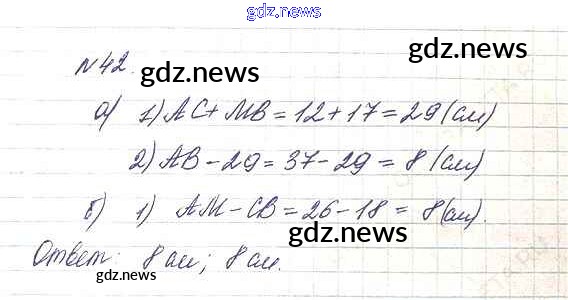 gdz.news
N 42.
gdz.news
gdz.news
а) 1) AC + MB = 12 + 17 = 29 (см)
2) AB - 29 = 37 - 29 = 8 (см)
б) 1) AM - CB = 26 - 18 = 8 (см).
gdz.news
Ответ: 8 см; 8 см.
gdz.news